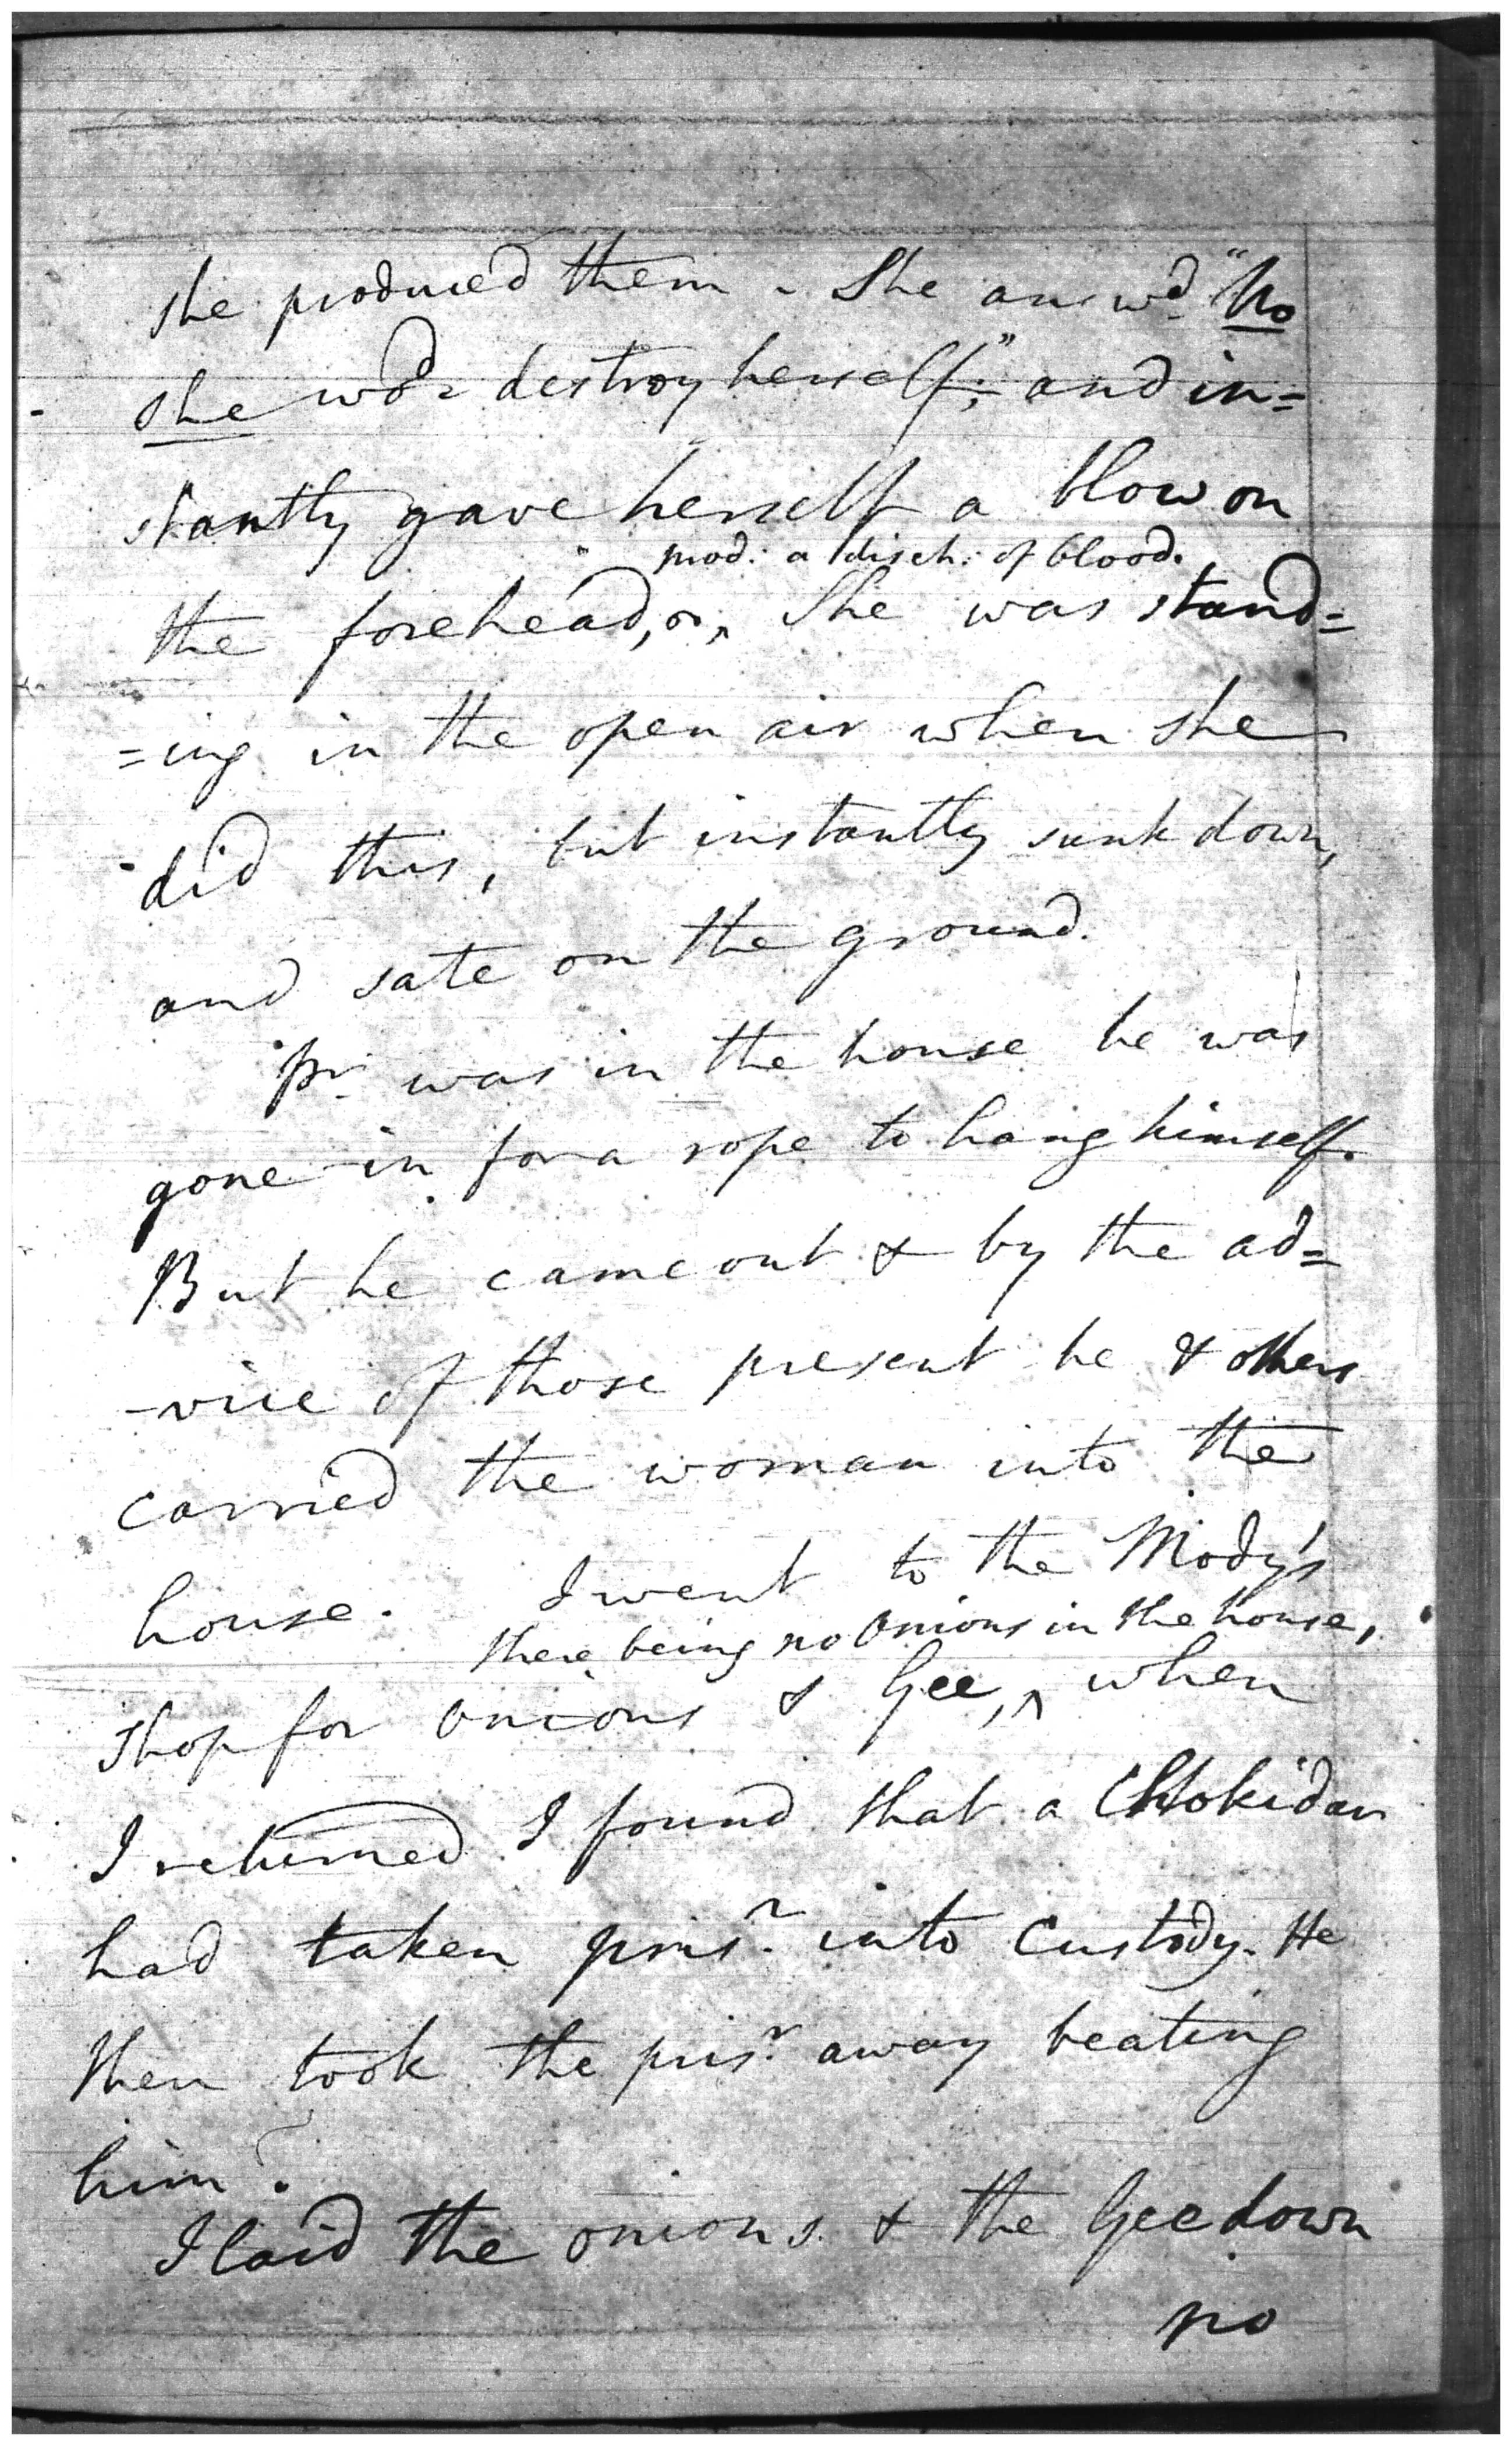 she produced them - She answd. "No
she wod. destroy herself;" and in=
stantly gave herself a blow on
prod: a disch: of blood.
the forehead, ^ She was stand=
=ing in the open air when she
did this, but instantly sunk down,
and sate on the ground.
Pr. was in the house he was
gone in for a rope to hang himself.
But he came out & by the ad=
-vice of those present he & others
carried the woman into the
house. I went to the Mody's
there being no Onions in the house,
shop for Onions & Gee, ^ when
I returned I found that a Chokidar
had taken prisr. into Custody. He
then took the prisr. away beating
him.
I laid the onions & the Gee down
no